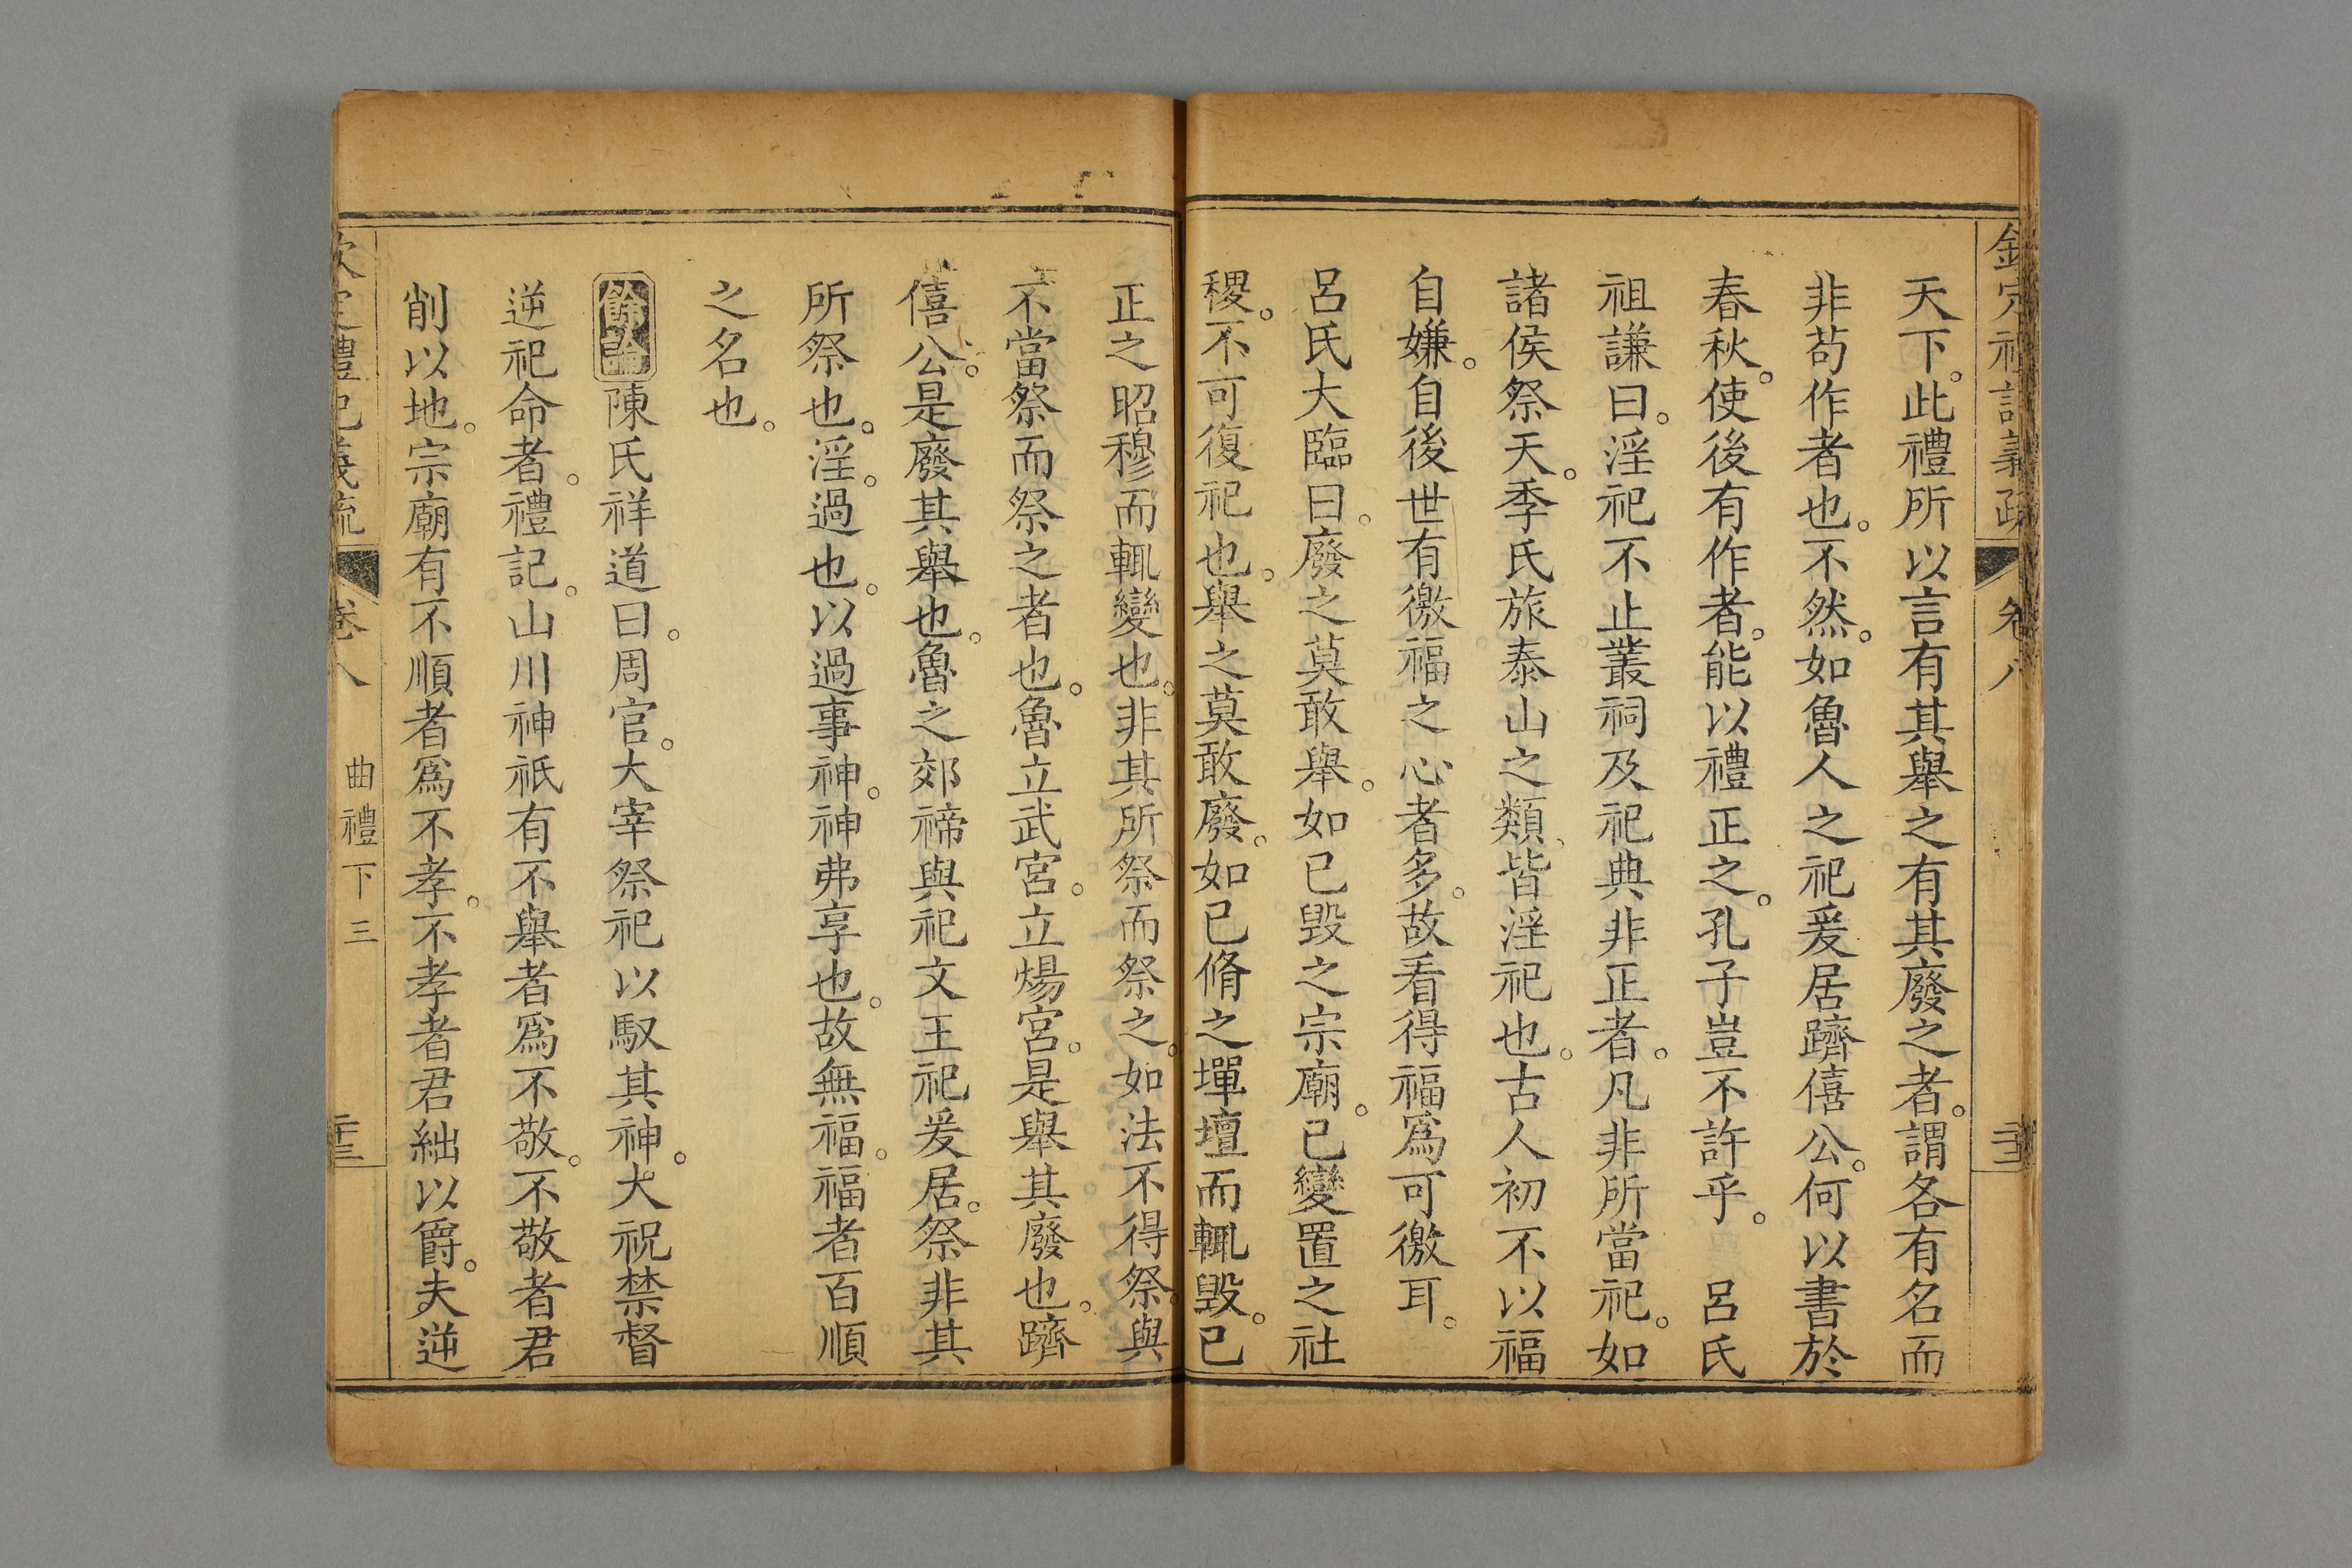 欽定禮記義疏 卷八
天下。此禮所以言有其舉之有其廢之者。謂各有名而
非苟作者也。不然。如魯人之祀爰居躋僖公。何以書於
春秋。使後有作者。能以禮正之。孔子豈不許乎。 呂氏
祖謙曰。淫祀不止叢祠及祀典非正者。凡非所當祀。如
諸侯祭天。季氏旅泰山之類、皆淫祀也。古人初不以福
自嫌。自後世有徼福之心者多。故看得福爲可徼耳。
呂氏大臨曰。廢之莫敢舉。如已毀之宗廟。已變置之社
稷。不可復祀也。舉之莫敢廢。如已脩之墠壇而輒毀。已
正之昭穆而輒變也。非其所祭而祭之。如法不得祭。與
不當祭而祭之者也。魯立武宮。立煬宮。是舉其廢也。躋
僖公。是廢其舉也。魯之郊禘與祀文王祀爰居。祭非其
所祭也。淫。過也。以過事神。神弗享也。故無福。福者百順
之名也。
餘論陳氏祥道曰。周官。大宰祭祀以馭其神。大祝禁督
逆祀命者。禮記。山川神祇有不舉者爲不敬。不敬者君
削以地。宗廟有不順者爲不孝。不孝者君絀以爵。夫逆
欽定禮記義疏 卷八 曲禮下三